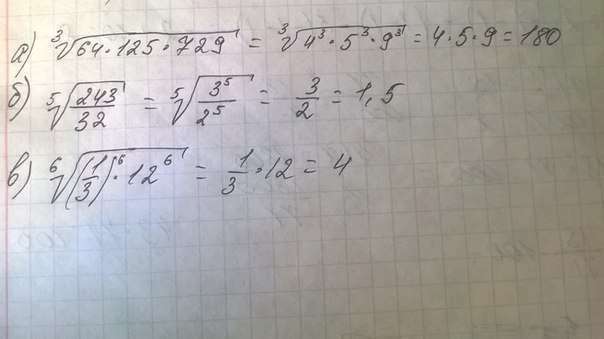 а) ∛(64·125·729) = ∛(4³·5³·9³) = 4·5·9 = 180
б) ⁵√(243/32) = ⁵√(3⁵/2⁵) = 3/2 = 1,5
в) ⁶√((1/3)⁶·12⁶) = 1/3·12 = 4